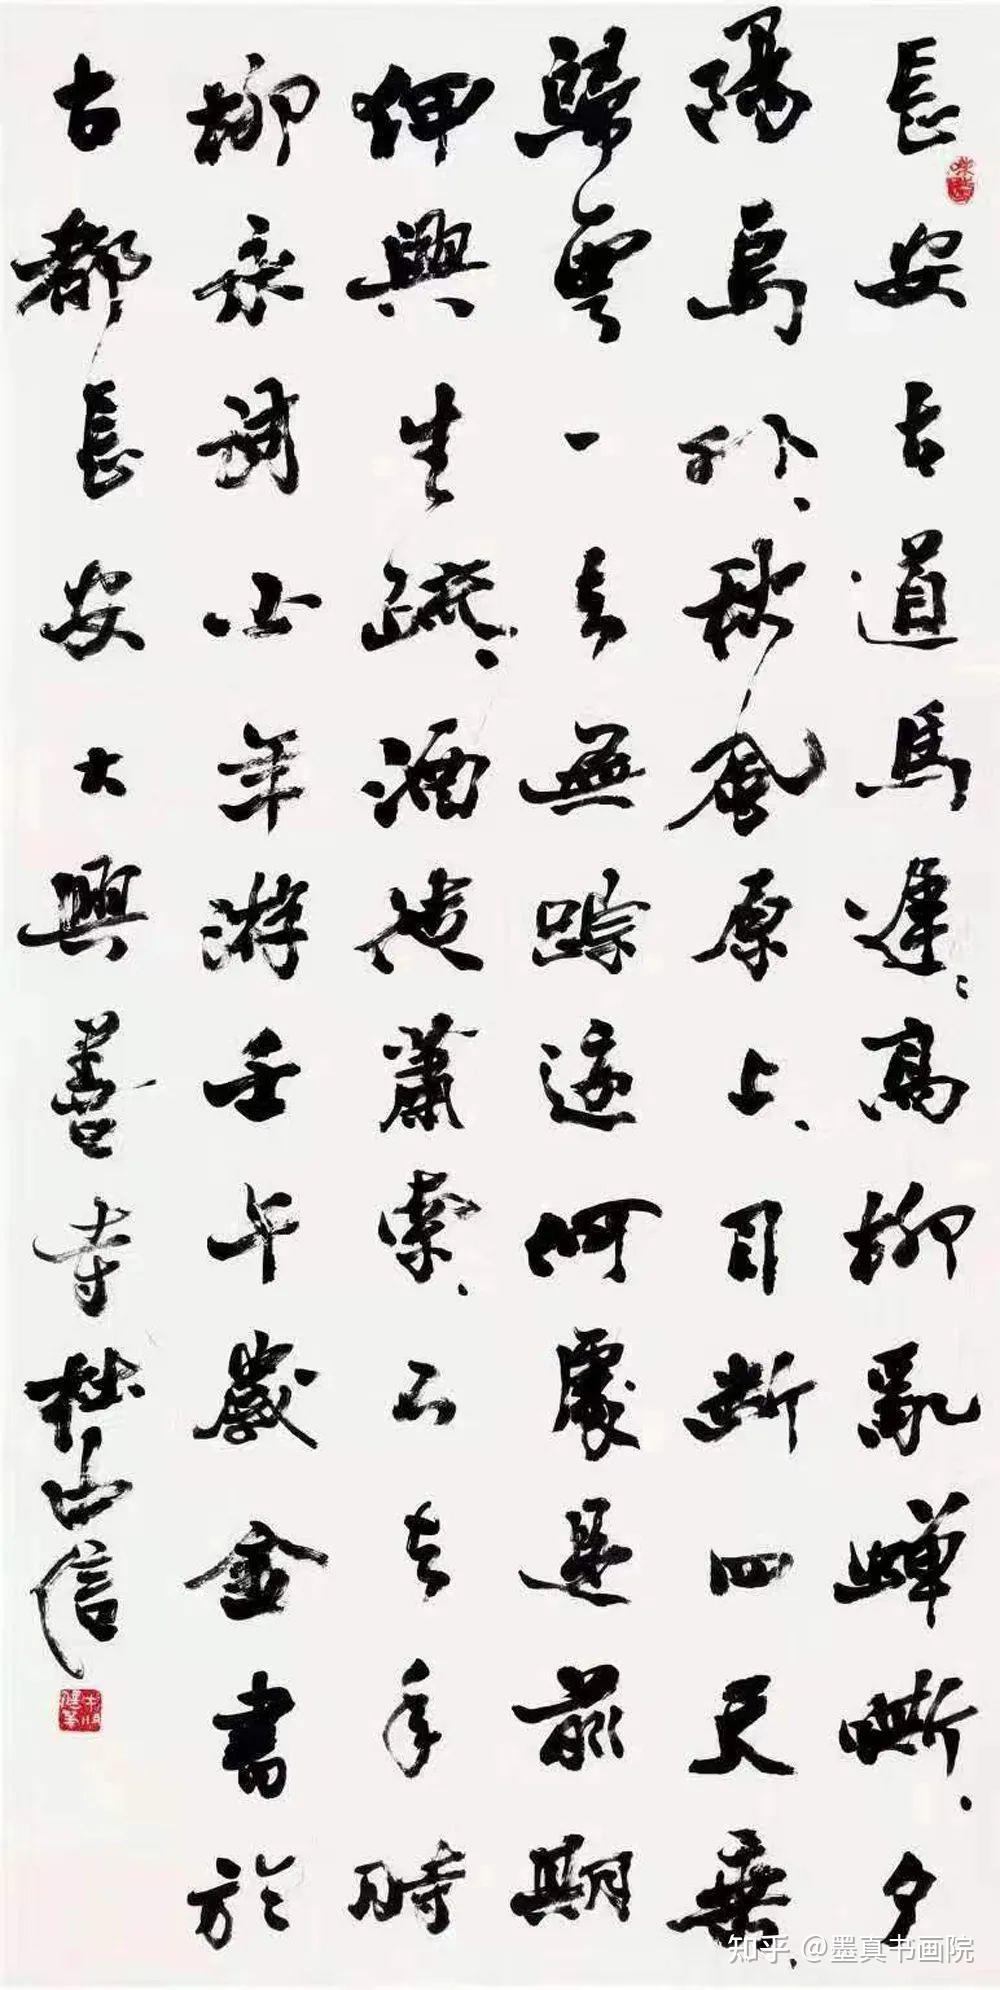 長安古道馬遲遲高柳亂蟬嘶、夕
陽島外、秋風原上、目断四天垂、
歸雲一去無踪迹何處是前期
狎興生疏、酒徒蕭索、不去年時
柳永詞少年游壬午歲金書於
古都長安大興善寺山信
知乎 @墨真书画院